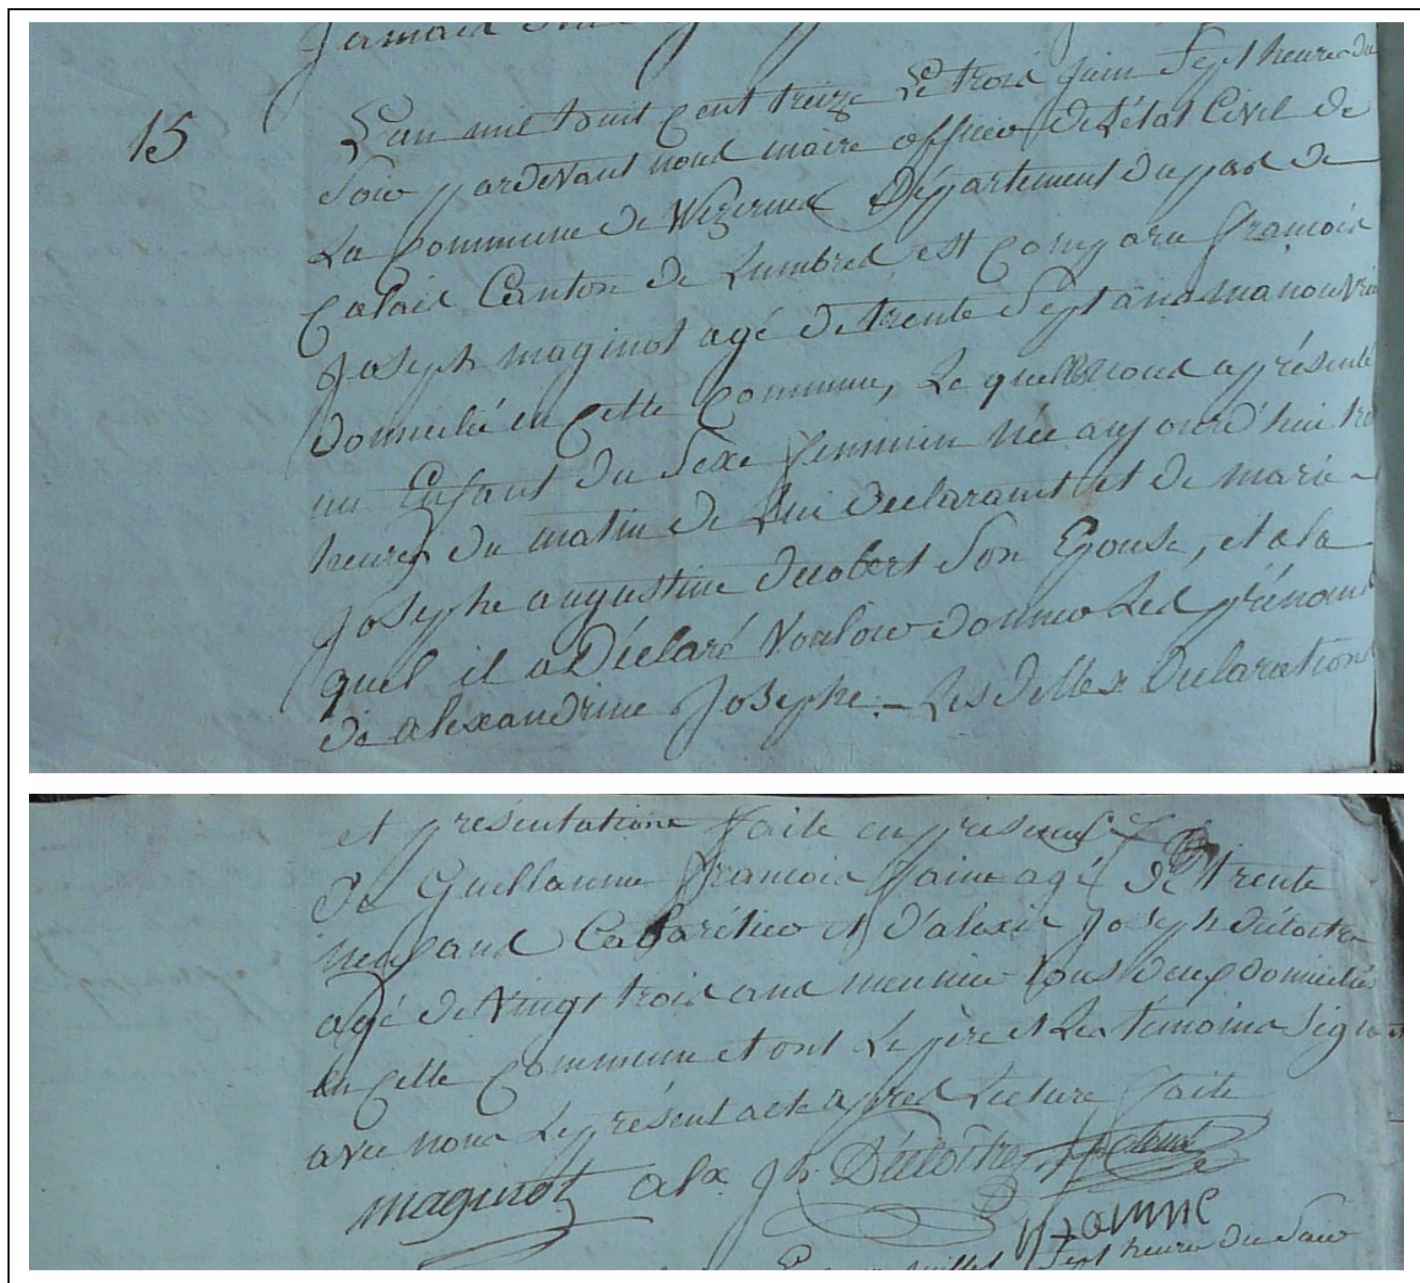 jamais
15
L'an mil huit cent treize Le trois juin Sept heures du
Soir pardevant nous maire officier De L'état Civil De
La Commune De Wizernes Département du pas de
Calais Canton de Lumbres est Comparu francois
Joseph maginot agé De trente Sept ans manouvrier
Domicilié en Cette Commune, Le quel nous a présenté
un Enfant du Sexe feminin née aujourd'hui trois
heures du matin de Lui déclarant et de marie
Josephe augustine Decobert Son Epouse, et a la
quel il a Déclaré Vouloir donner Les prénoms
de alexandrine Josephe. Les dittes Declarations
et présentations faite en présence
De Guillaume francois faime agé De trente
neuf ans Cabarétier et d'alexis Joseph Décloitre
agé de Vingt trois ans meunier tous deux domiciliés
en Cette Commune et ont Le père et Les témoins Signé
avec nous Le présent acte apres Lecture faite
maginot alx. Jh. Décloitre
juillet Sept heure du Soir